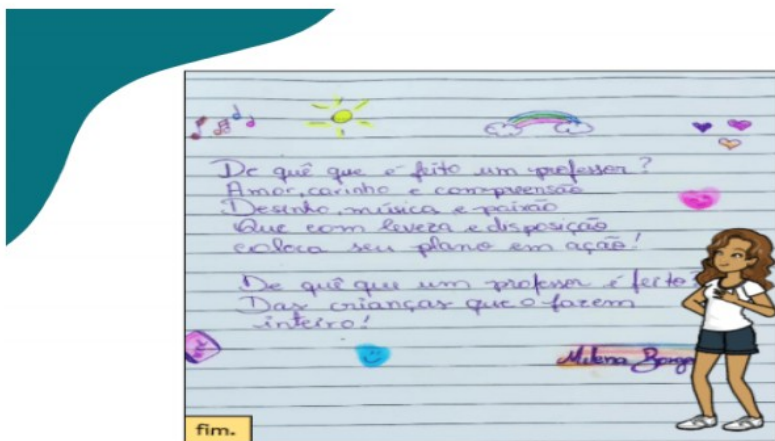 De quê que é feito um professor?
Amor, carinho e compreensão
Desenho, música e paixão
Que com leveza e disposição
coloca seu plano em ação!
De quê que um professor é feito?
Das crianças que o fazem
inteiro!
Milena Borge
fim.